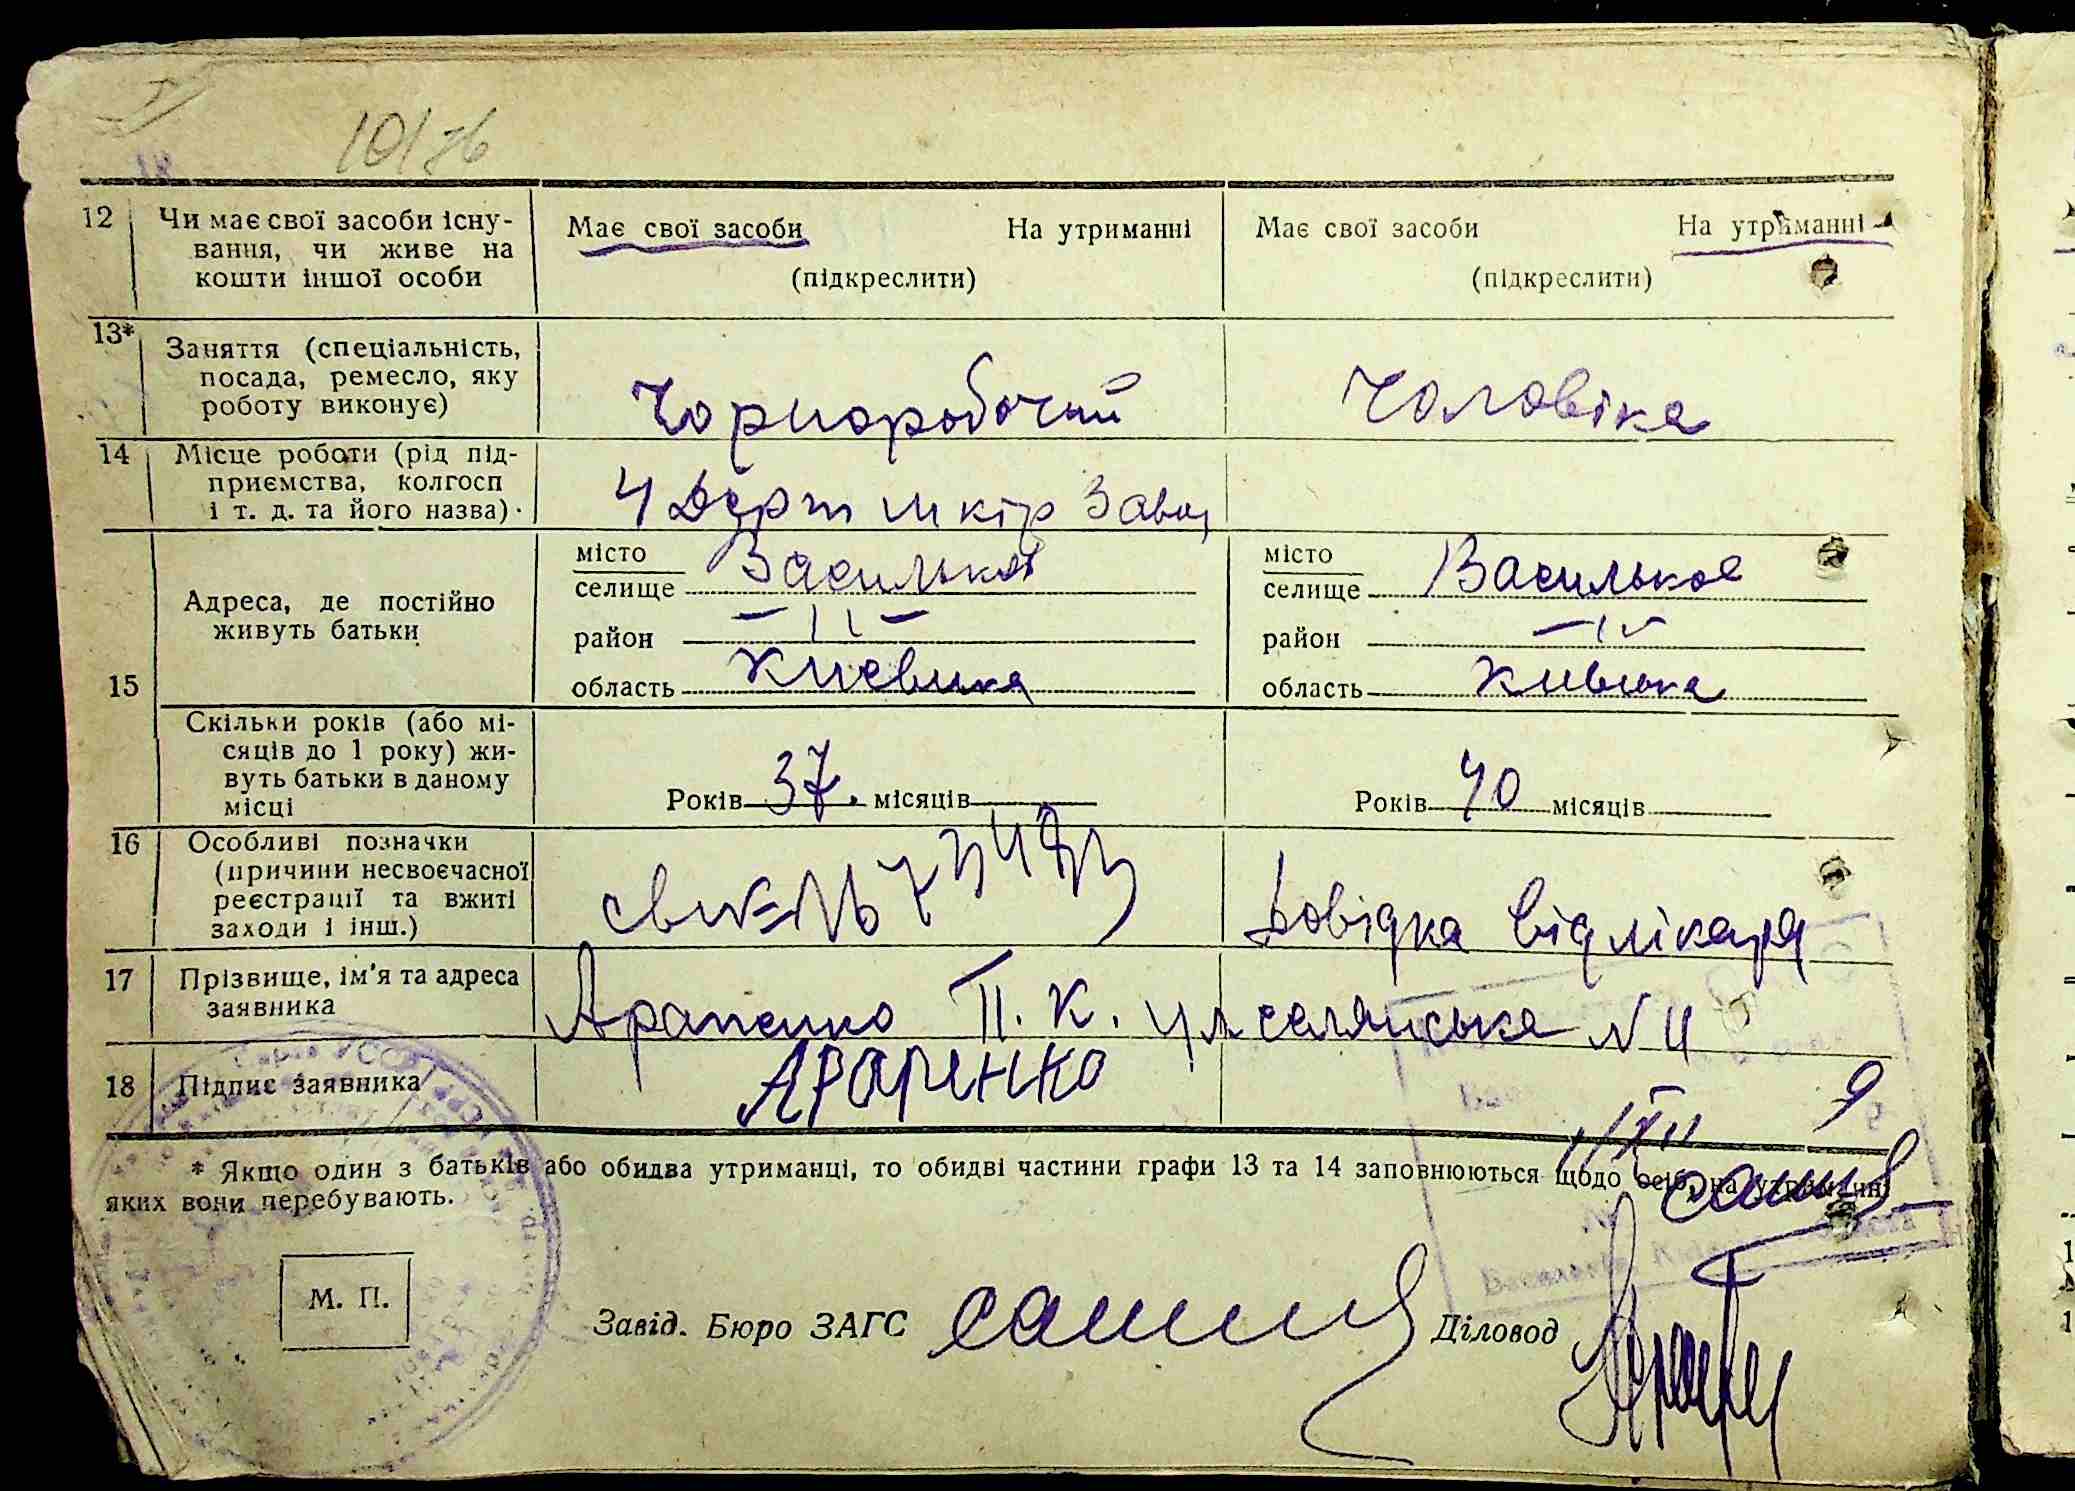 10/76
12 Чи має свої засоби існу- Має свої засоби На утриманні Має свої засоби На утриманні
вання, чи живе на
кошти іншої особи (підкреслити) (підкреслити)
13* Заняття (спеціальність,
посада, ремесло, яку
роботу виконує) Чорноробочий Чоловіка
14 Місце роботи (рід під-
приємства, колгосп
і т. д. та його назва) 4 Держ шкір Завод
15 Адреса, де постійно
живуть батьки
місто Васильков місто Васильков
селище селище
район — 11 — район
область Києвська область
Скільки років (або мі-
сяців до 1 року) жи-
вуть батьки в даному
місці Років 37. місяців Років 40 місяців
16 Особливі позначки
(причини несвоєчасної
реєстрації та вжиті
заходи і інш.) Довідка від лікаря
17 Прізвище, ім'я та адреса
заявника Арапенко П. К. ул селянська N 11
18 Підпис заявника Арапенко
* Якщо один з батьків або обидва утриманці, то обидві частини графи 13 та 14 заповнюються щодо осіб, на утриманні
яких вони перебувають.
М. П.
Завід. Бюро ЗАГС Діловод